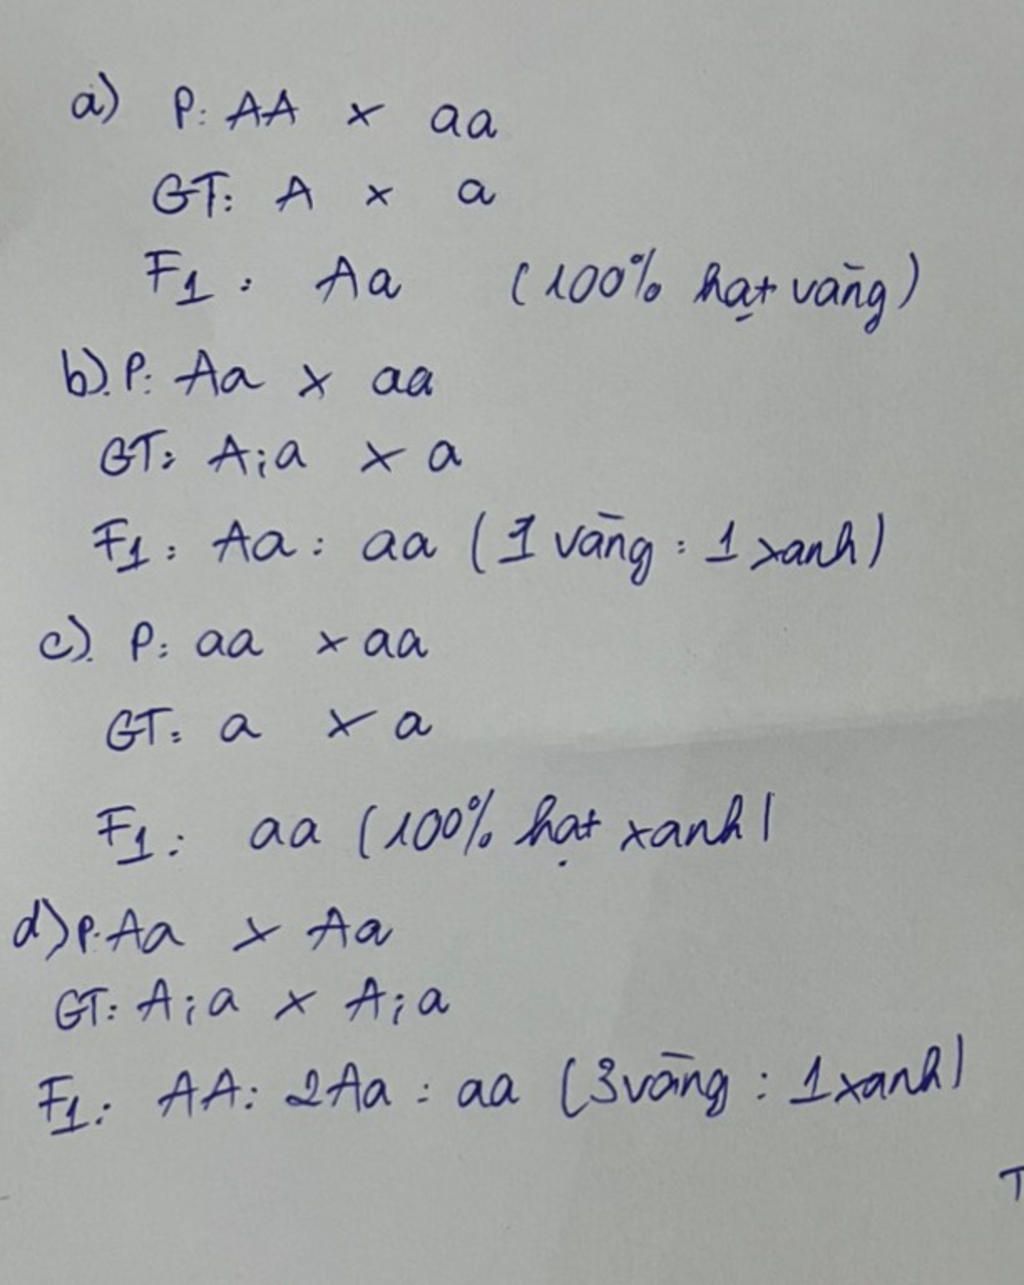 a) P: AA x aa
GT: A x a
F1: Aa (100% hạt vàng)
b). P: Aa x aa
GT: A; a x a
F1: Aa : aa (1 vàng : 1 xanh)
c). P: aa x aa
GT: a x a
F1: aa (100% hạt xanh)
d) P: Aa x Aa
GT: A; a x A; a
F1: AA: 2Aa : aa (3 vàng : 1 xanh)
T